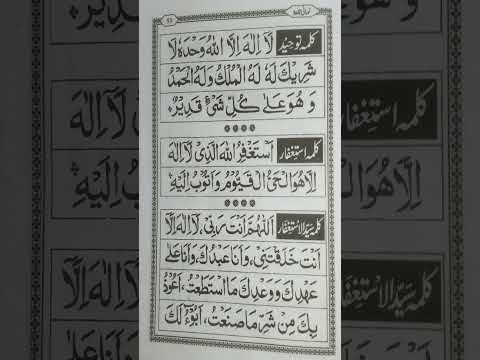 ۱۶
نورانی قاعدہ
کلمہ توحید لَآ اِلٰهَ اِلَّا اللّٰهُ وَحْدَهٗ لَا
شَرِیْكَ لَهٗ لَهُ الْمُلْكُ وَلَهُ الْحَمْدُ
وَهُوَ عَلٰی كُلِّ شَیْءٍ قَدِیْرٌ
کلمہ استغفار اَسْتَغْفِرُ اللّٰهَ الَّذِیْ لَآ اِلٰهَ
اِلَّا هُوَ الْحَیُّ الْقَیُّوْمُ وَاَتُوْبُ اِلَیْهِ
کلمہ سیّد الاستغفار اَللّٰهُمَّ اَنْتَ رَبِّیْ، لَآ اِلٰهَ اِلَّا
اَنْتَ خَلَقْتَنِیْ، وَاَنَا عَبْدُكَ، وَاَنَا عَلٰی
عَهْدِكَ وَوَعْدِكَ مَا اسْتَطَعْتُ، اَعُوْذُ
بِكَ مِنْ شَرِّ مَا صَنَعْتُ، اَبُوْءُ لَكَ